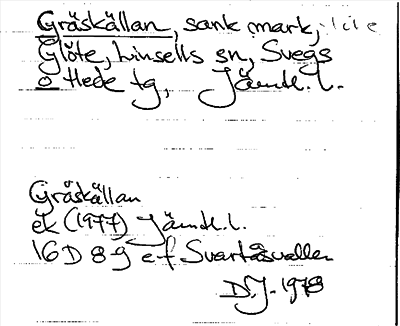 Gräskällan, sank mark,
Glöte, Linsells sn, Svegs
o Hede tg, Jämtl. l.
Gräskällan
ek (1977) Jämtl. l.
16D 8g e f Svartåsvallen
D.J. 1978